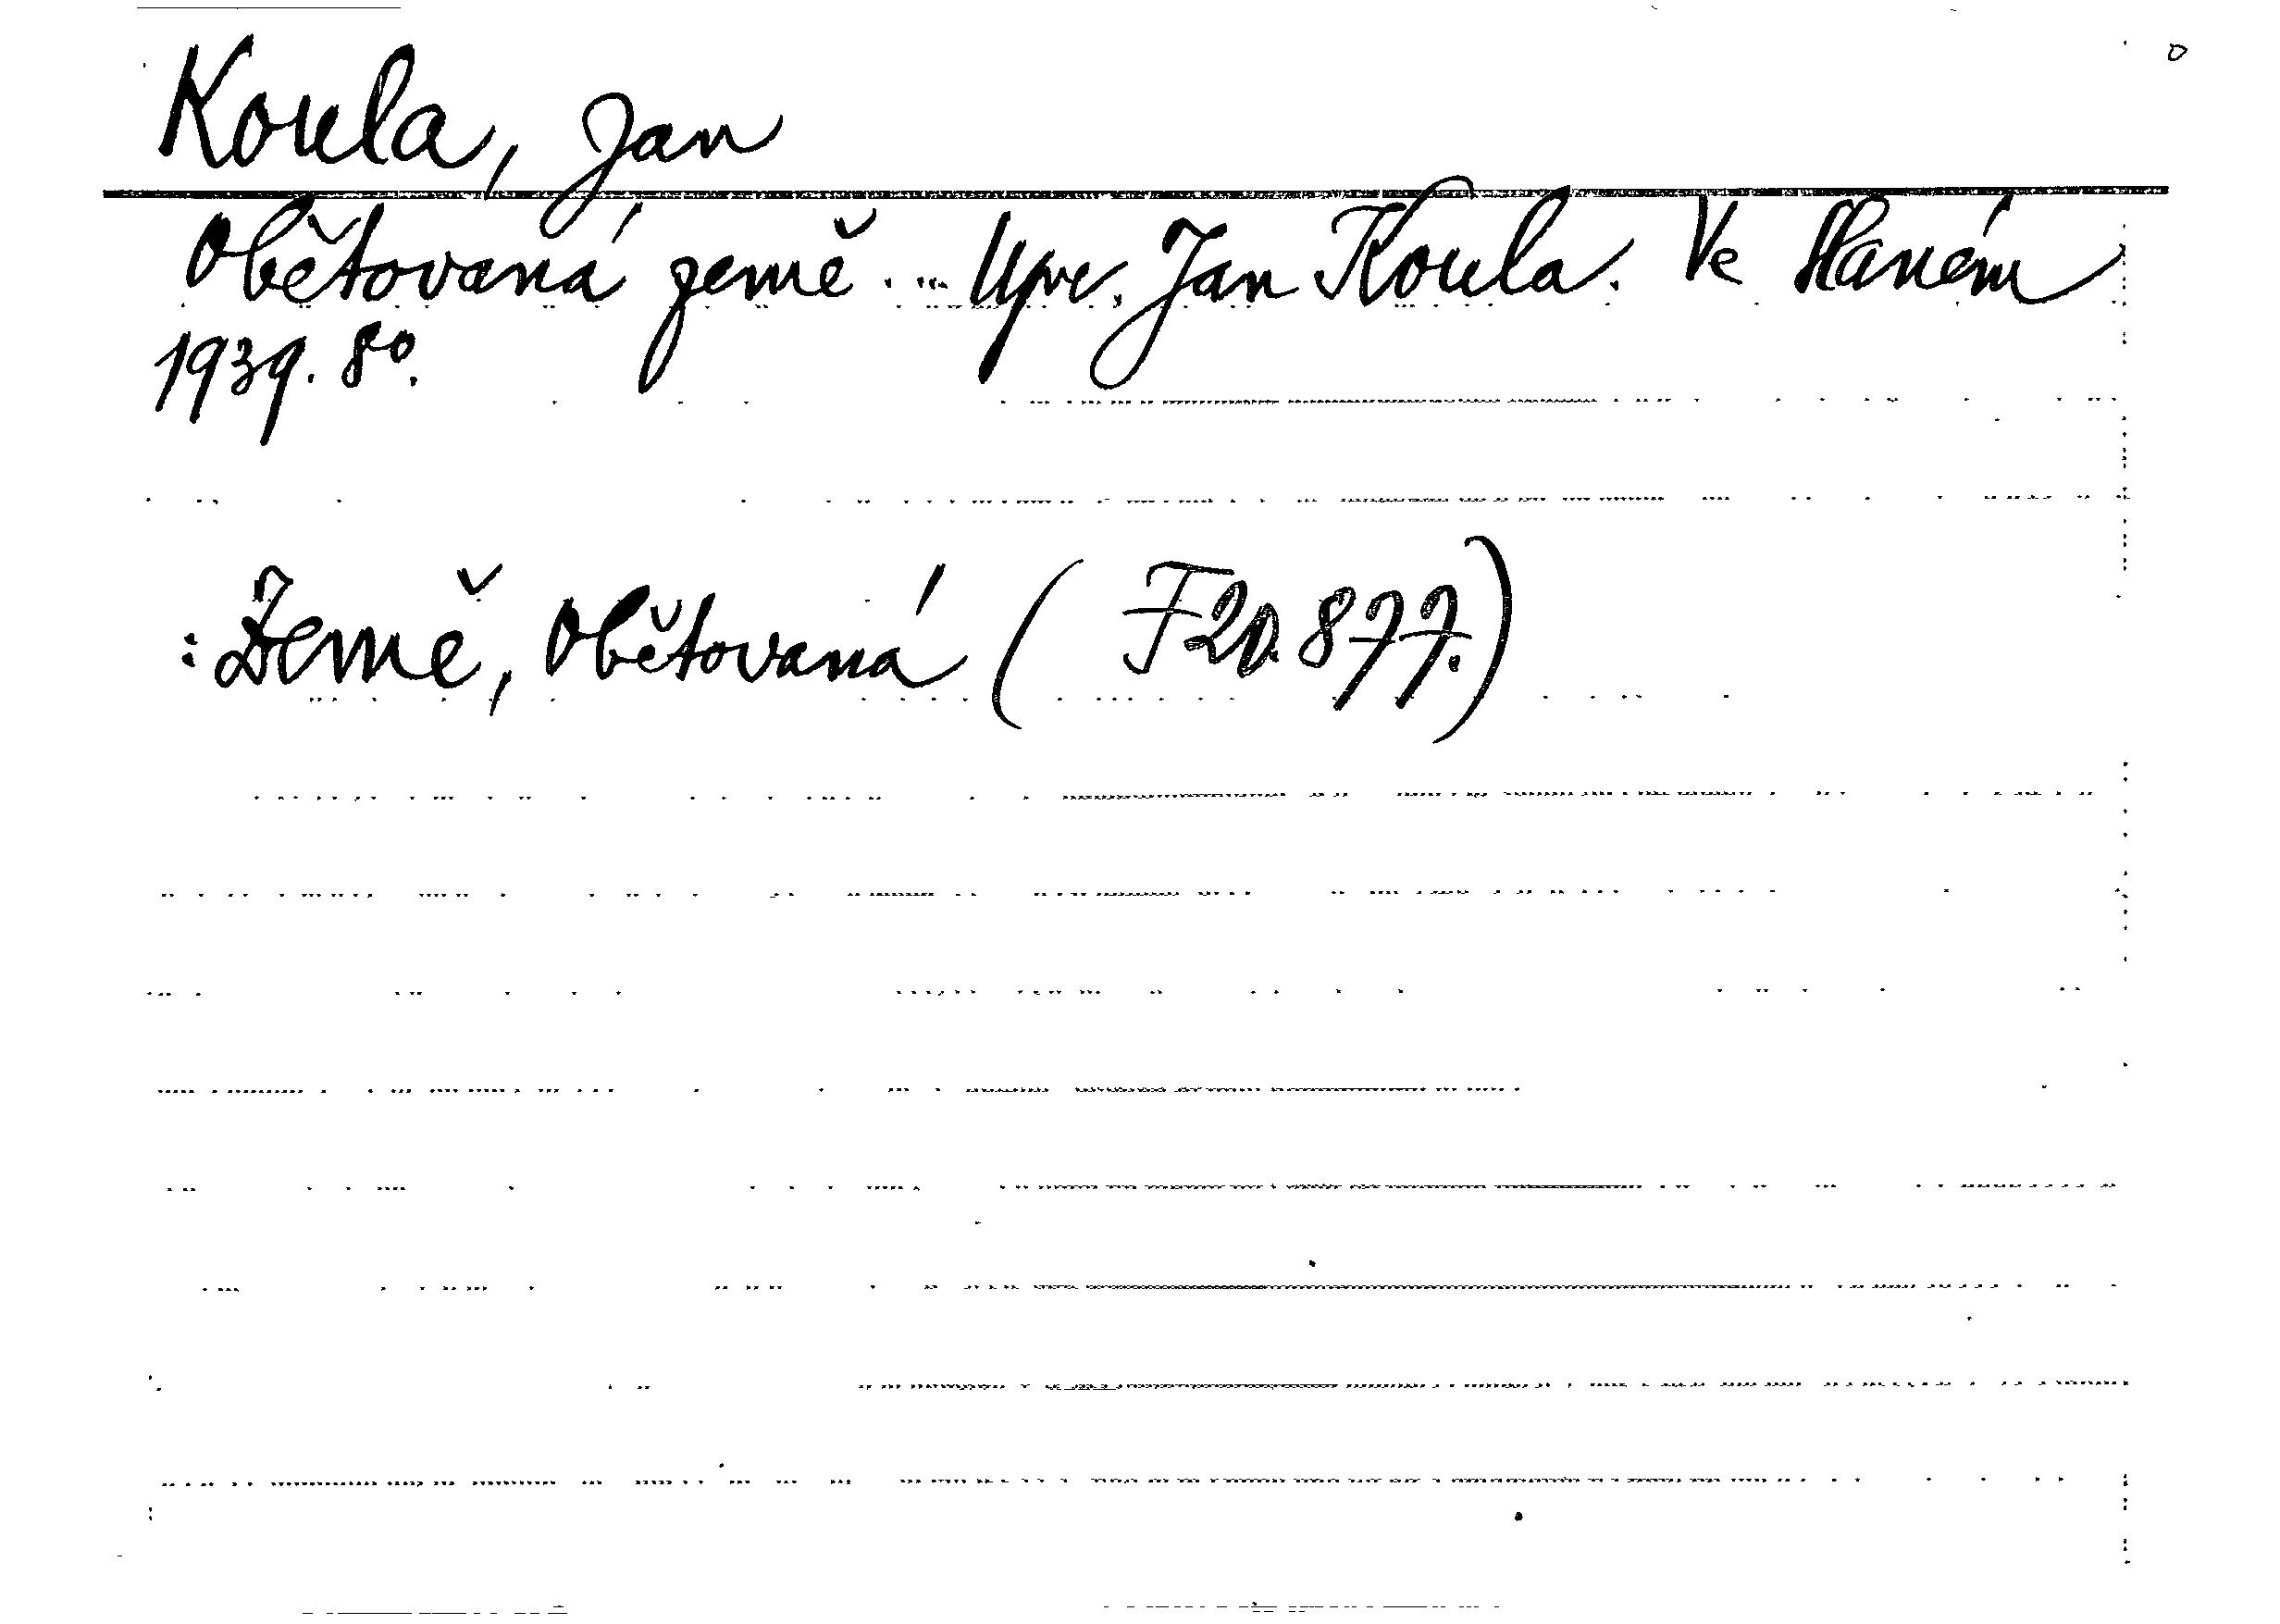 Koula, Jan
Obětovaná země ... Upr. Jan Koula. Ve Slaném
1939. 8°.
: Země, Obětovaná ( F20.877.)